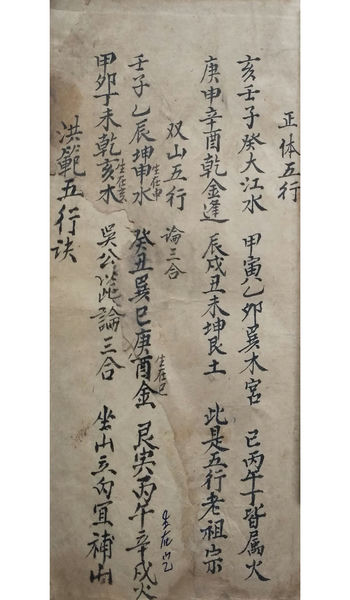 正体五行
亥壬子癸大江水 甲寅乙卯巽木宮 巳丙午丁皆属火
庚申辛酉乾金逢 辰戌丑未坤艮土 此是五行老祖宗
双山五行 論三合
壬子乙辰坤申水 生在申 癸丑巽巳庚酉金 生在巳 艮寅丙午辛戌火 生在
甲卯丁未乾亥木 生在亥 吳公論三合 坐山立向宜補山
洪範五行诀